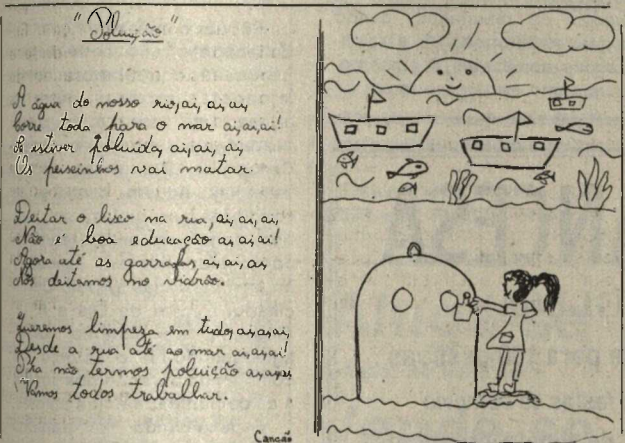 "Poluição"
A água do nosso rio, ai, ai, ai,
Corre toda para o mar ai, ai, ai!
Se estiver poluída, ai, ai, ai,
Os peixinhos vai matar.
Deitar o lixo na rua, ai, ai, ai,
Não é boa educação ai, ai, ai!
Agora até as garrafas, ai, ai, ai,
Nós deitamos no vidrão.
Queremos limpeza em tudo, ai, ai, ai,
Desde a rua até ao mar ai, ai, ai!
P'ra não termos poluição ai, ai, ai,
Vamos todos trabalhar.
Canção